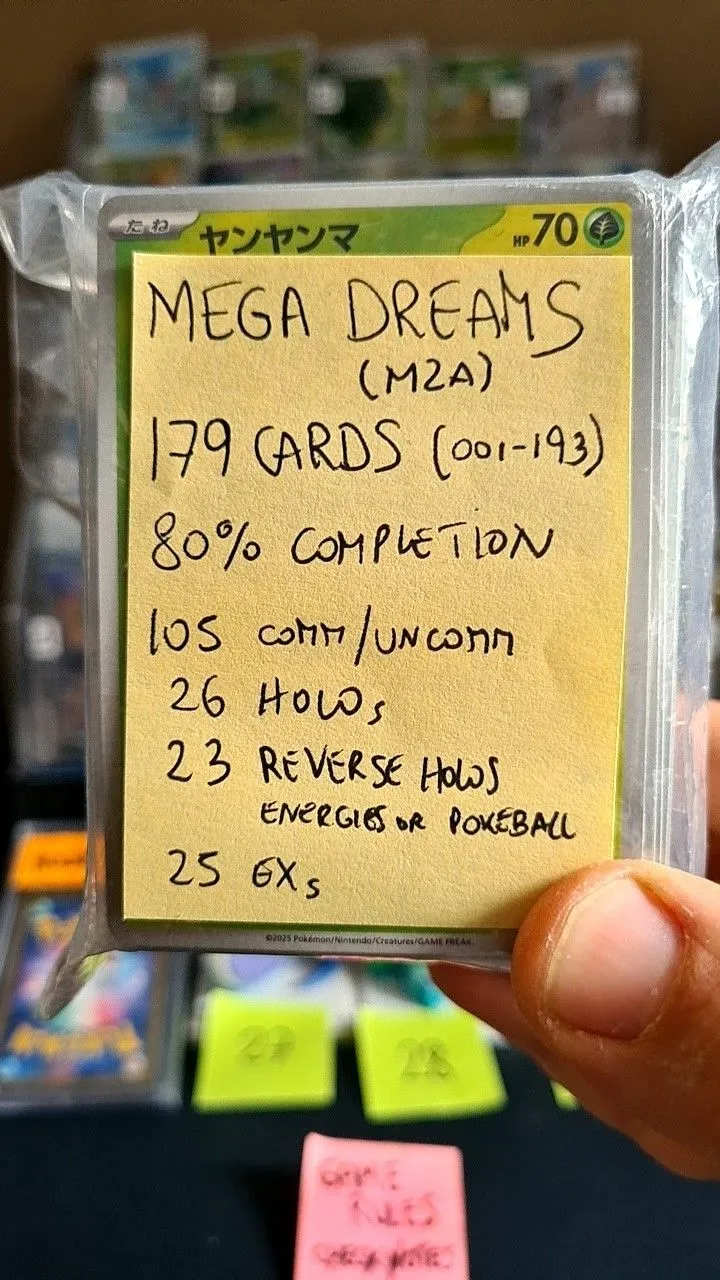 たね ヤンヤンマ HP70
MEGA DREAMS
(M2A)
179 CARDS (001-193)
80% COMPLETION
105 COMM/UNCOMM
26 HOLOs
23 REVERSE HOLOS
ENERGIES OR POKEBALL
25 EXs
©2025 Pokémon/Nintendo/Creatures/GAME FREAK.
27
28
GAME
RULES